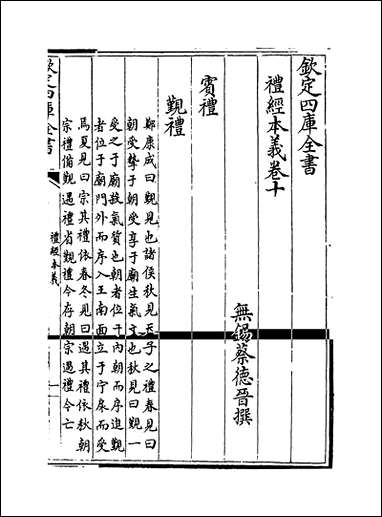 欽定四庫全書
禮經本義卷十
無錫蔡德晉撰
賓禮
覲禮
鄭康成曰覲見也諸侯秋見天子之禮春見曰
朝受摯于朝受享于廟生氣文也秋見曰覲一
受之于廟殺氣質也朝者位于內朝而序進覲
者位于廟門外而序入王南面立于宁扆而受
焉夏見曰宗其禮依春冬見曰遇其禮依秋朝
宗禮備覲遇禮省覲禮今存朝宗遇禮今亡
欽定四庫全書
禮經本義
一